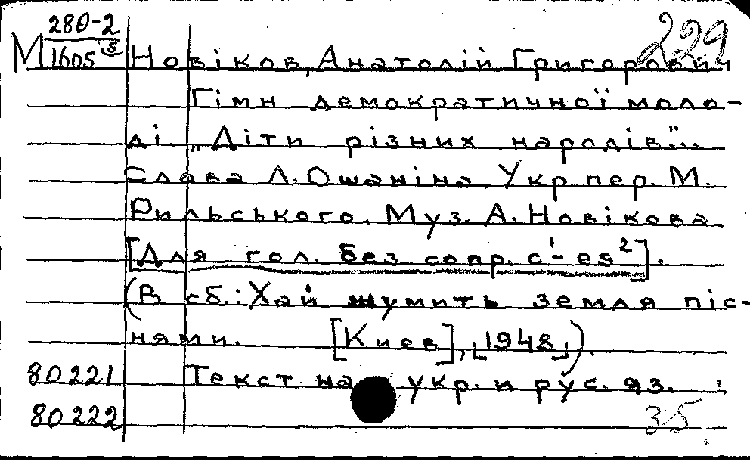 280-2
М 1605 Новіков, Анатолій Григорович 229
Гімн демократичної моло-
ді „Діти різних народів"...
Слова Л. Ошаніна. Укр. пер. М.
Рильського. Муз. А. Новікова
[Для гол. без сопр. с¹-es²].
(В сб.: Хай шумить земля піс-
нями. [Киев], 1948).
80221 Текст на укр. и рус. яз.
80222 35